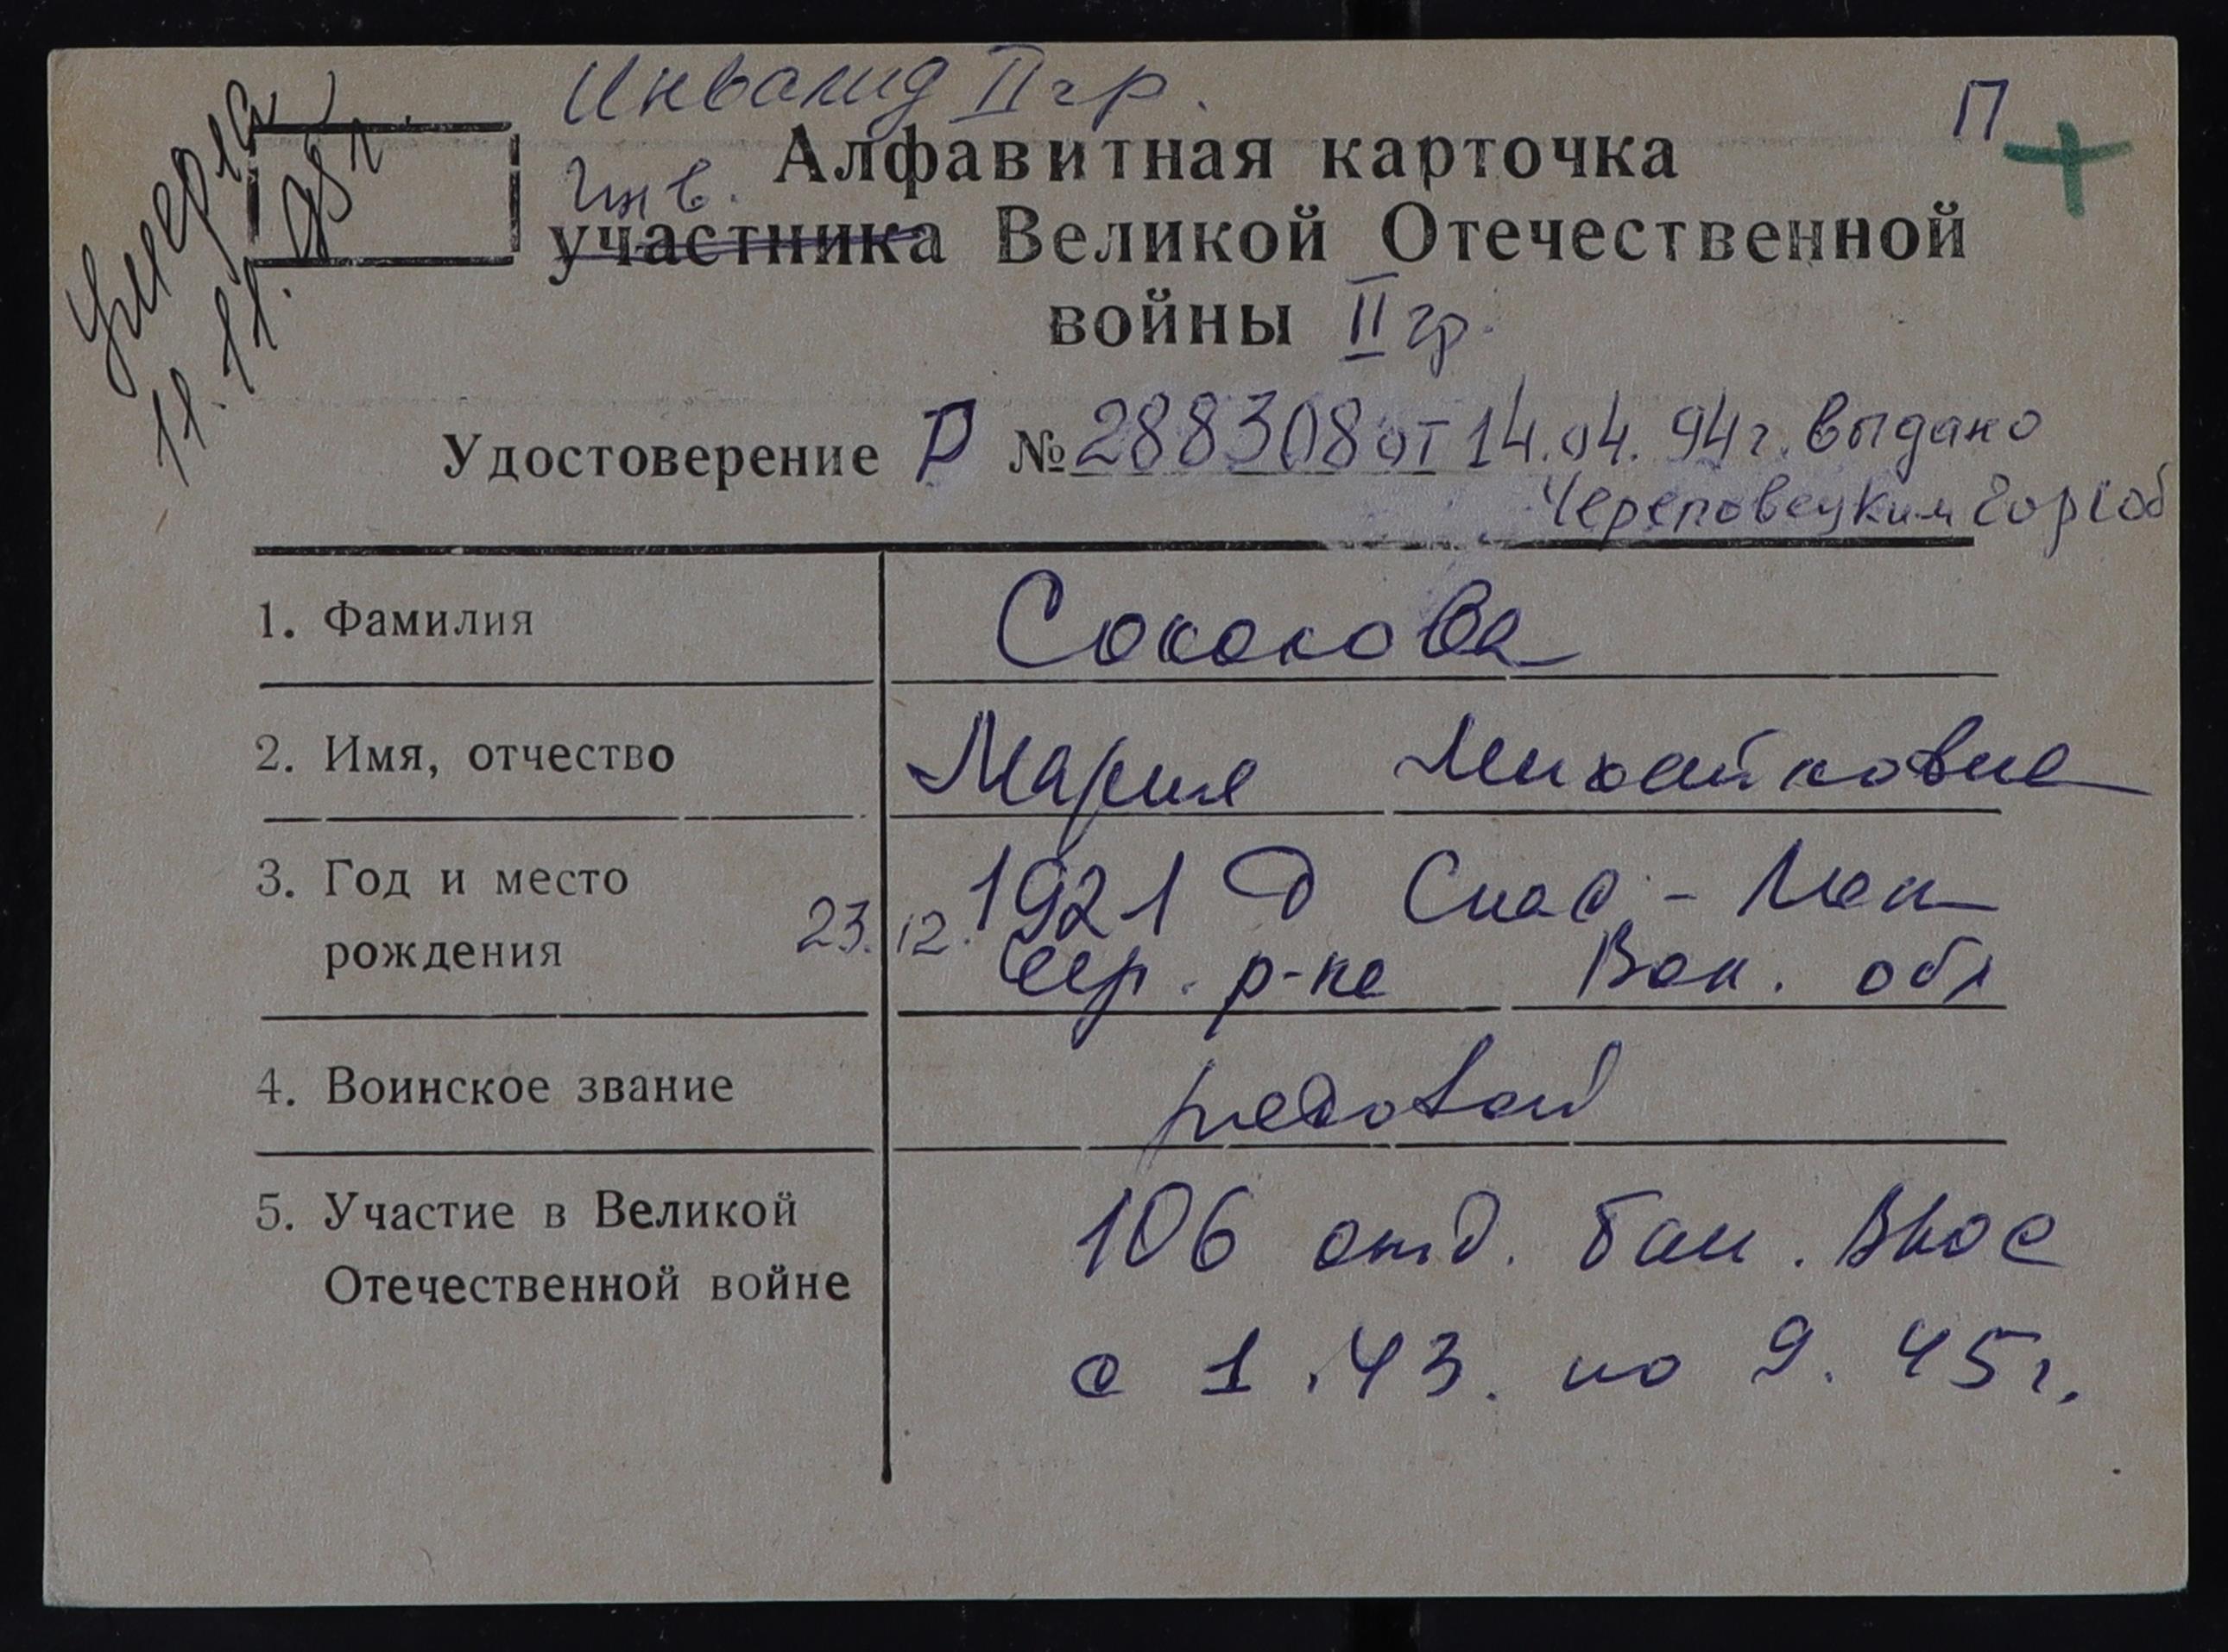 Инвалид II гр.
П
умерла
11.11.98 г.
Алфавитная карточка
инв.
участника Великой Отечественной
войны II гр.
Удостоверение Р № 288308 от 14.04.94 г. выдано
Череповецким горсоб
1. Фамилия Соколова
2. Имя, отчество Мария Михайловна
3. Год и место 1921 д Спас-
рождения 23.12. Чер. р-на Вол. обл
4. Воинское звание рядовой
5. Участие в Великой 106 отд. бат. ВНОС
Отечественной войне
с 1.43. по 9.45 г.